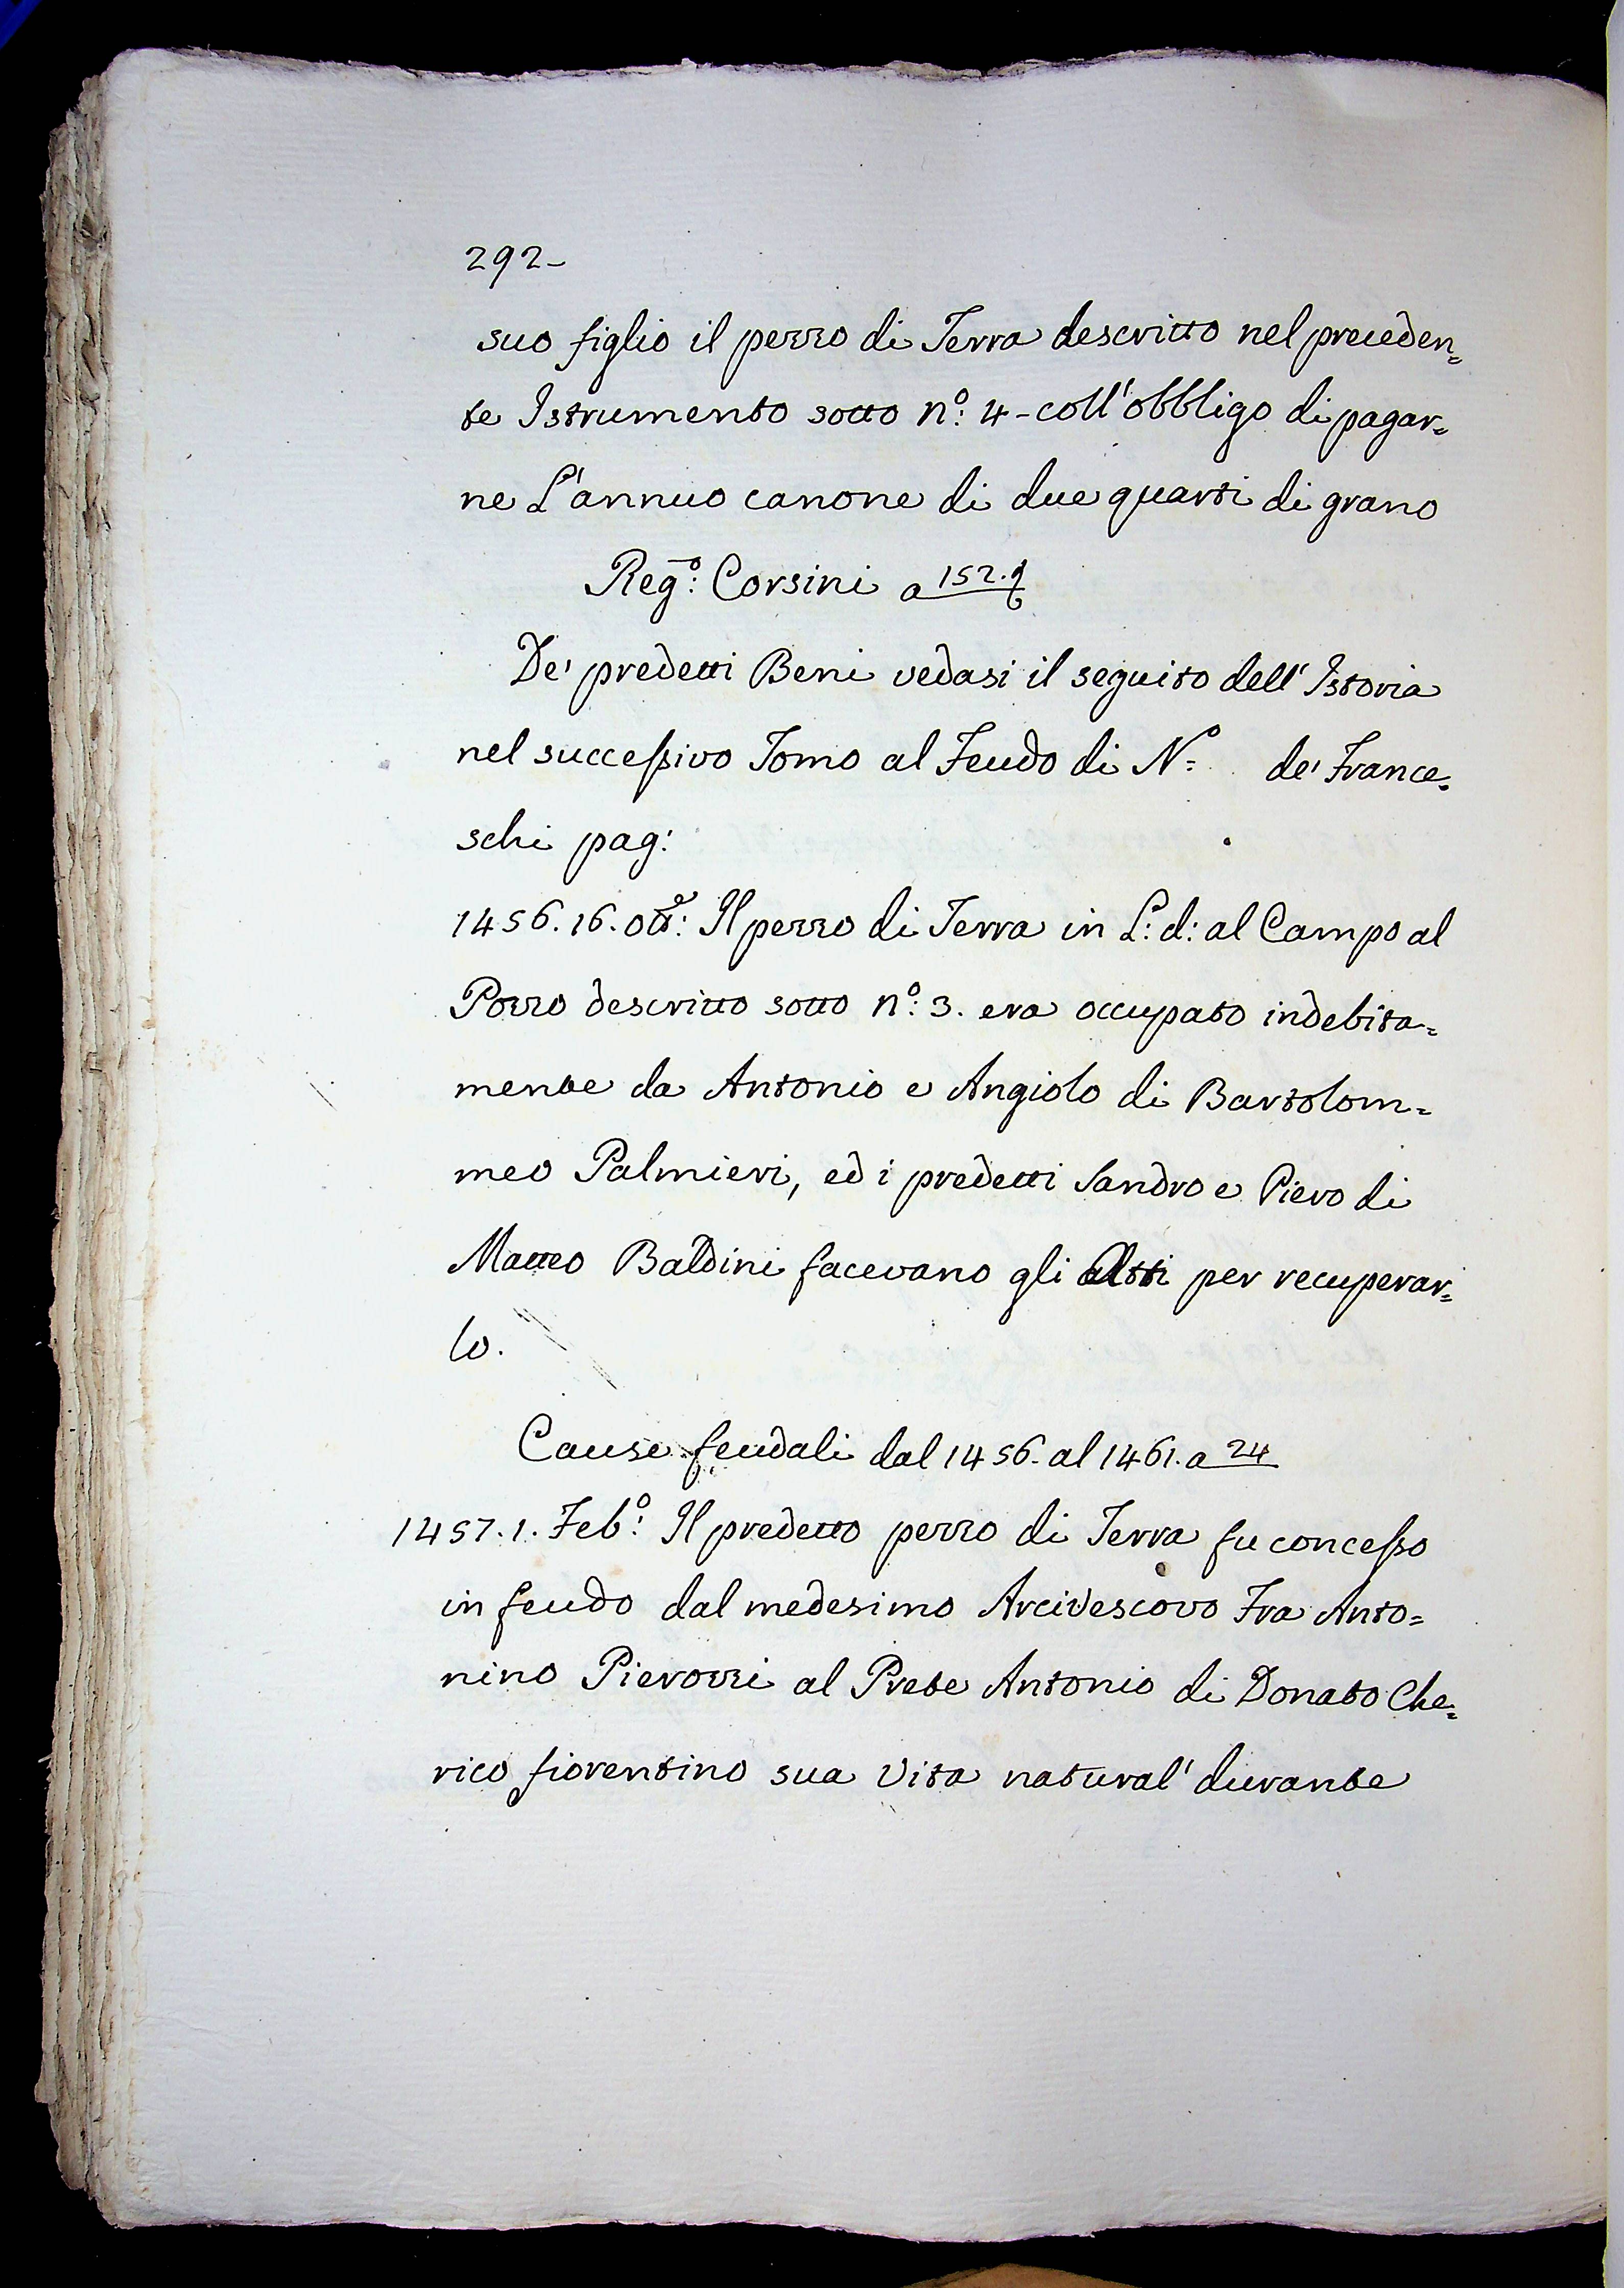 292-
suo figlio il pezzo di Terra descritto nel preceden=
te Istrumento sotto n.º 4 - coll'obbligo di pagar=
ne L'annuo canone di due quarti di grano
Reg.º: Corsini a 152.
De' predetti Beni vedasi il seguito dell'Istoria
nel successivo Tomo al Feudo di N.º de' France=
schi pag:
1456. 16. Ott.e: Il pezzo di Terra in L: d: al Campo al
Pozzo descritto sotto n.º 3. era occupato indebita=
mente da Antonio e Angiolo di Bartolom=
meo Palmieri, ed i predetti Sandro e Piero di
Matteo Baldini facevano gli Atti per recuperar=
lo.
Cause feudali dal 1456. al 1461. a 24
1457. 1. Feb.º: Il predetto pezzo di Terra fu concesso
in feudo dal medesimo Arcivescovo Fra Anto=
nino Pierozzi al Prete Antonio di Donato Che=
rico fiorentino sua Vita natural' durante